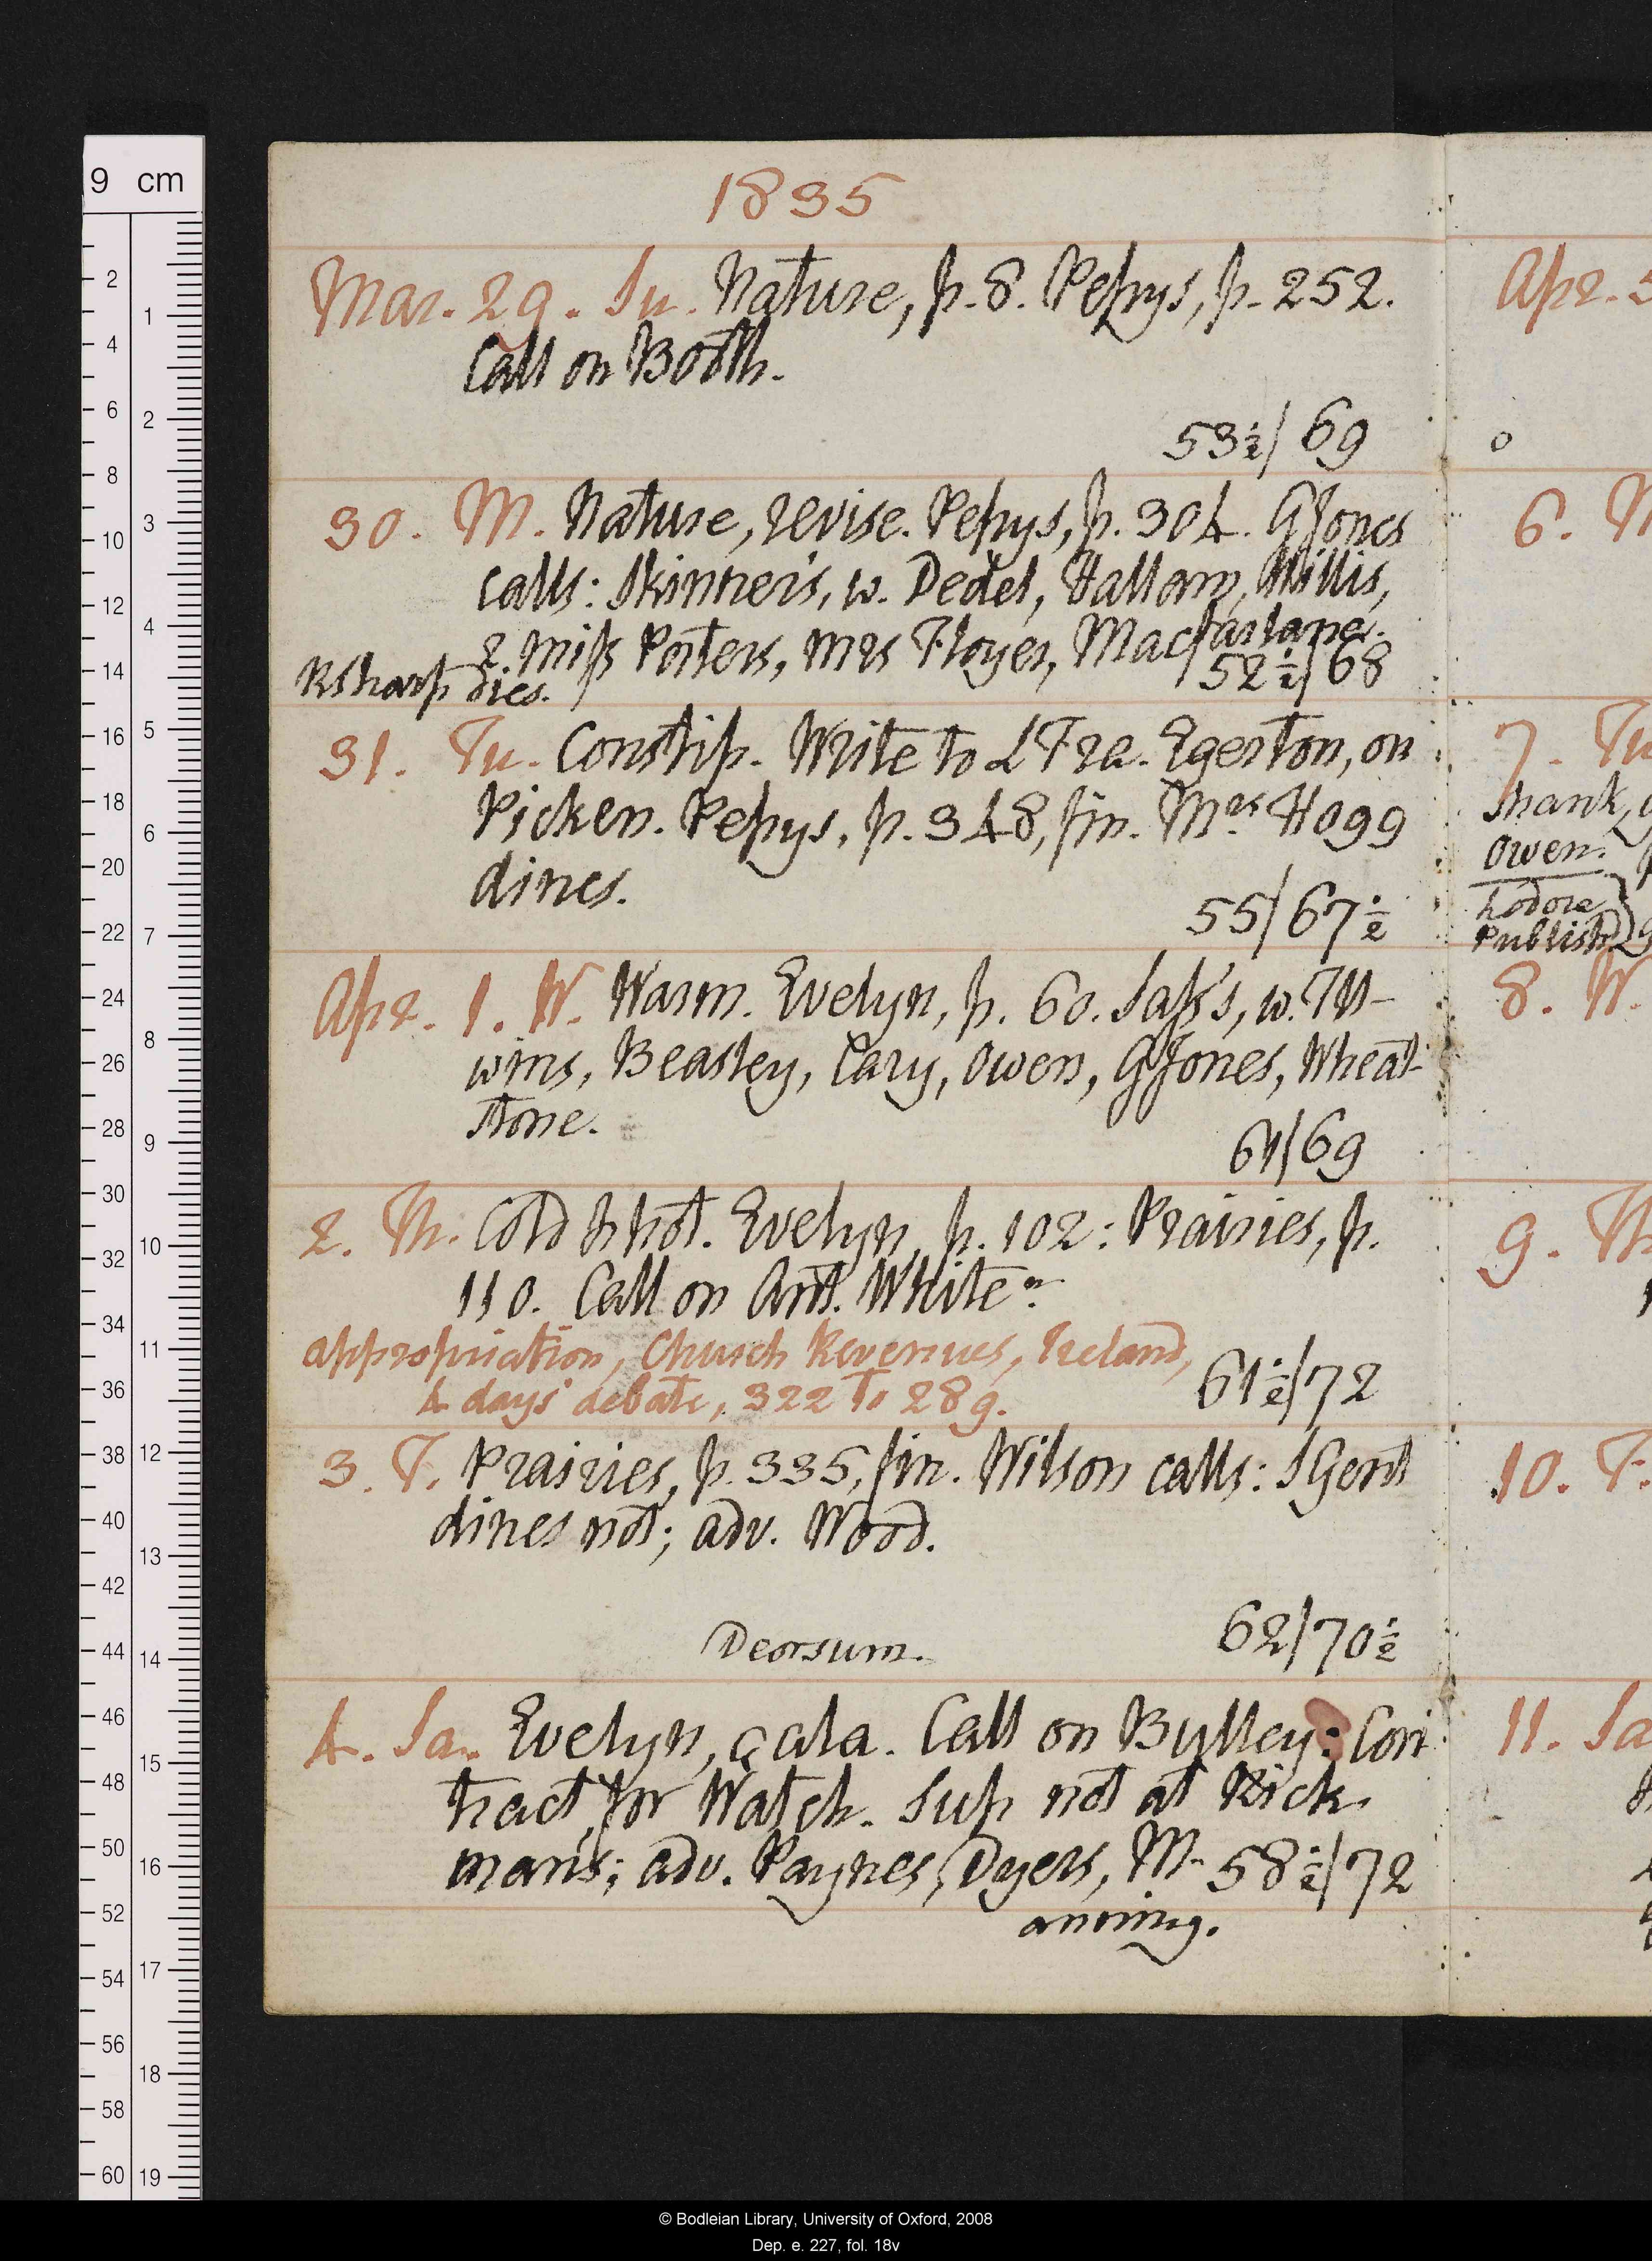 9 cm
1835
Mar. 29. Su. Nature, p. 8. Pepys, p. 252.
Call on Booth.
53½/69
30. M. Nature, revise. Pepys, p. 304. GJones
calls: Skinner's, w. Dedel, Hallam, Willis,
2 miss Porters, mrs Floyer, Macfarlane.
RSharp dies. 52½/68
31. Tu. Constip. Write to L Fra. Egerton, on
Picken. Pepys, p. 348, fin. Mrs Hogg
dines.
55/67½
Apr. 1. W. Warm. Evelyn, p. 60. Sass's, w. TU-
wins, Beasley, Cary, Owen, GJones, Wheat-
stone.
61/69
2. Th. Cold & hot. Evelyn, p. 102: Prairies, p.
110. Call on Ant. White
appropriation, Church Revenues, Ireland,
4 days' debate, 322 to 289.
61½/72
3. F. Prairies, p. 335, fin. Wilson calls: SGent
dines not; adv. Wood.
Deorsum. 62/70½
4. Sa. Evelyn, çala. Call on Bylley: Con-
tract for Watch. Sup not at Rick-
man's; adv. Paynes, Dyers, M-
anning. 58½/72
Apr. 5
6. M
7. Tu
thank
Owen.
Lodore
Publishd
8. W.
9. Th
10. F.
11. Sa
© Bodleian Library, University of Oxford, 2008
Dep. e. 227, fol. 18v